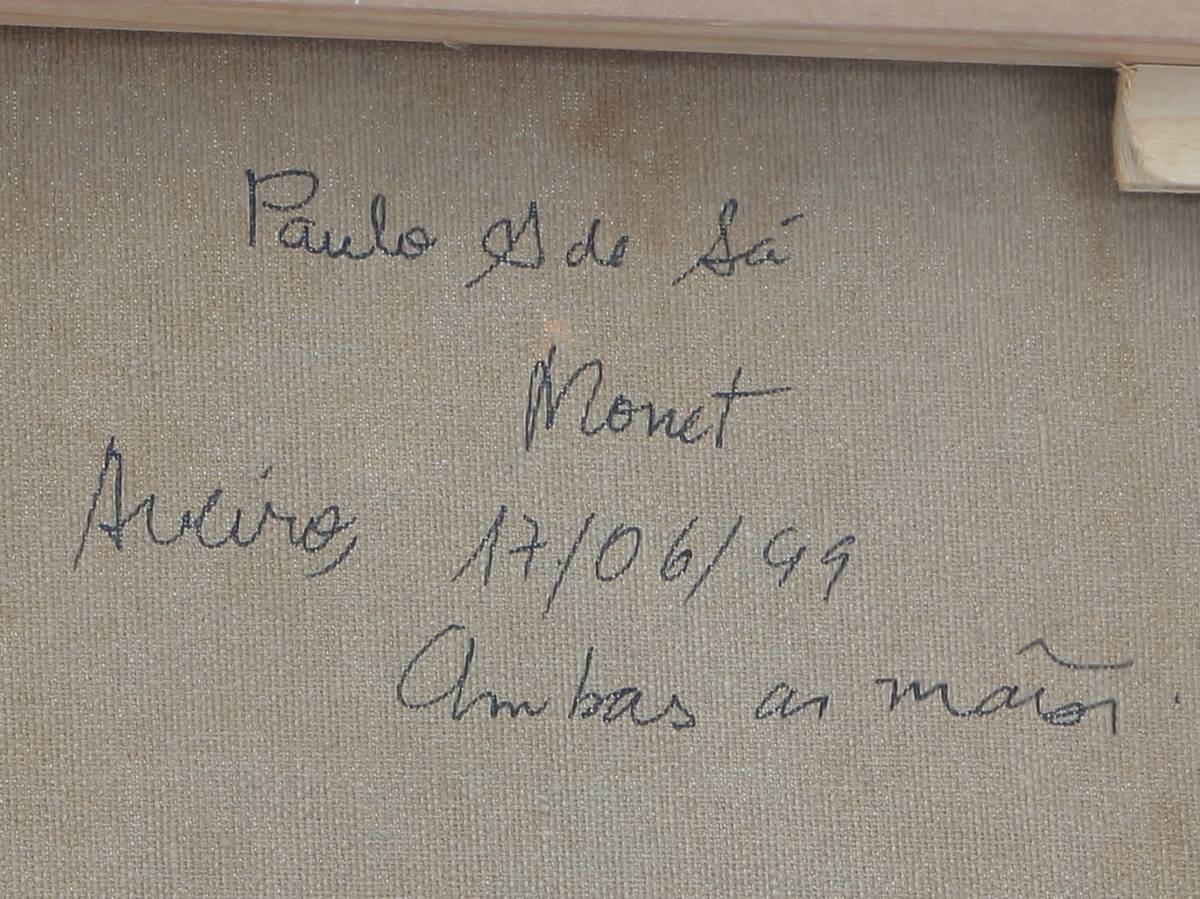 Paulo de Sá
Monet
Aveiro, 17/06/99
Ambas as mãos.